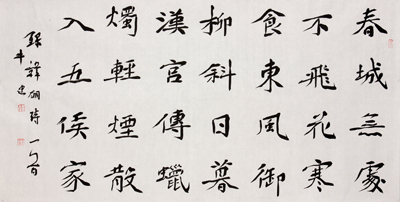 春城無處
不飛花寒
食東風御
柳斜日暮
漢宮傳蠟
燭輕煙散
入五侯家
錄韓翃詩一首